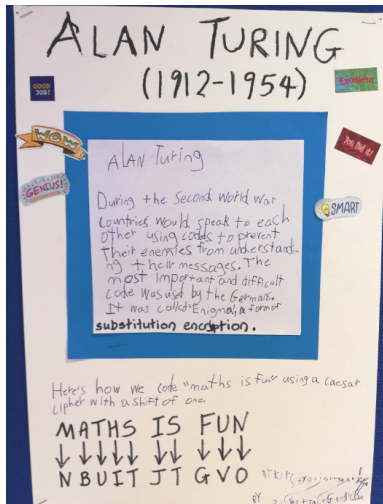 ALAN TURING
(1912-1954)
GOOD JOB!
Excellent
WOW
You Did it!
GENIUS!
SMART
ALAN Turing
During the Second World War
Countries would speak to each
other using codes to prevent
Their enemies from understand-
ing their messages. The
most Important and difficult
code was used by the Germans.
It was called Enigma, a form of
substitution encryption.
Here's how we code "maths is fun" using a caesar
cipher with a shift of one.
MATHS IS FUN
↓↓↓↓↓ ↓↓ ↓↓↓
NBUIT JT GVO
BY